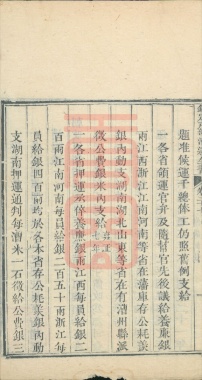 題准候運千總休工仍照舊例支給
一各省領運官并及隨幫官先後議給養廉銀
兩江西浙江江南河南等省在藩庫存公耗羨
銀內動支湖南湖北山東等省在有漕州縣派
徵公費銀米內支給
一各省押運丞倅養廉江西省每員給銀二
百兩江南河南每員給銀二百五十兩浙江每
員給銀四百兩均於各本省存公耗羨銀內動
支湖南押運通判每漕米一石徵給公費銀三